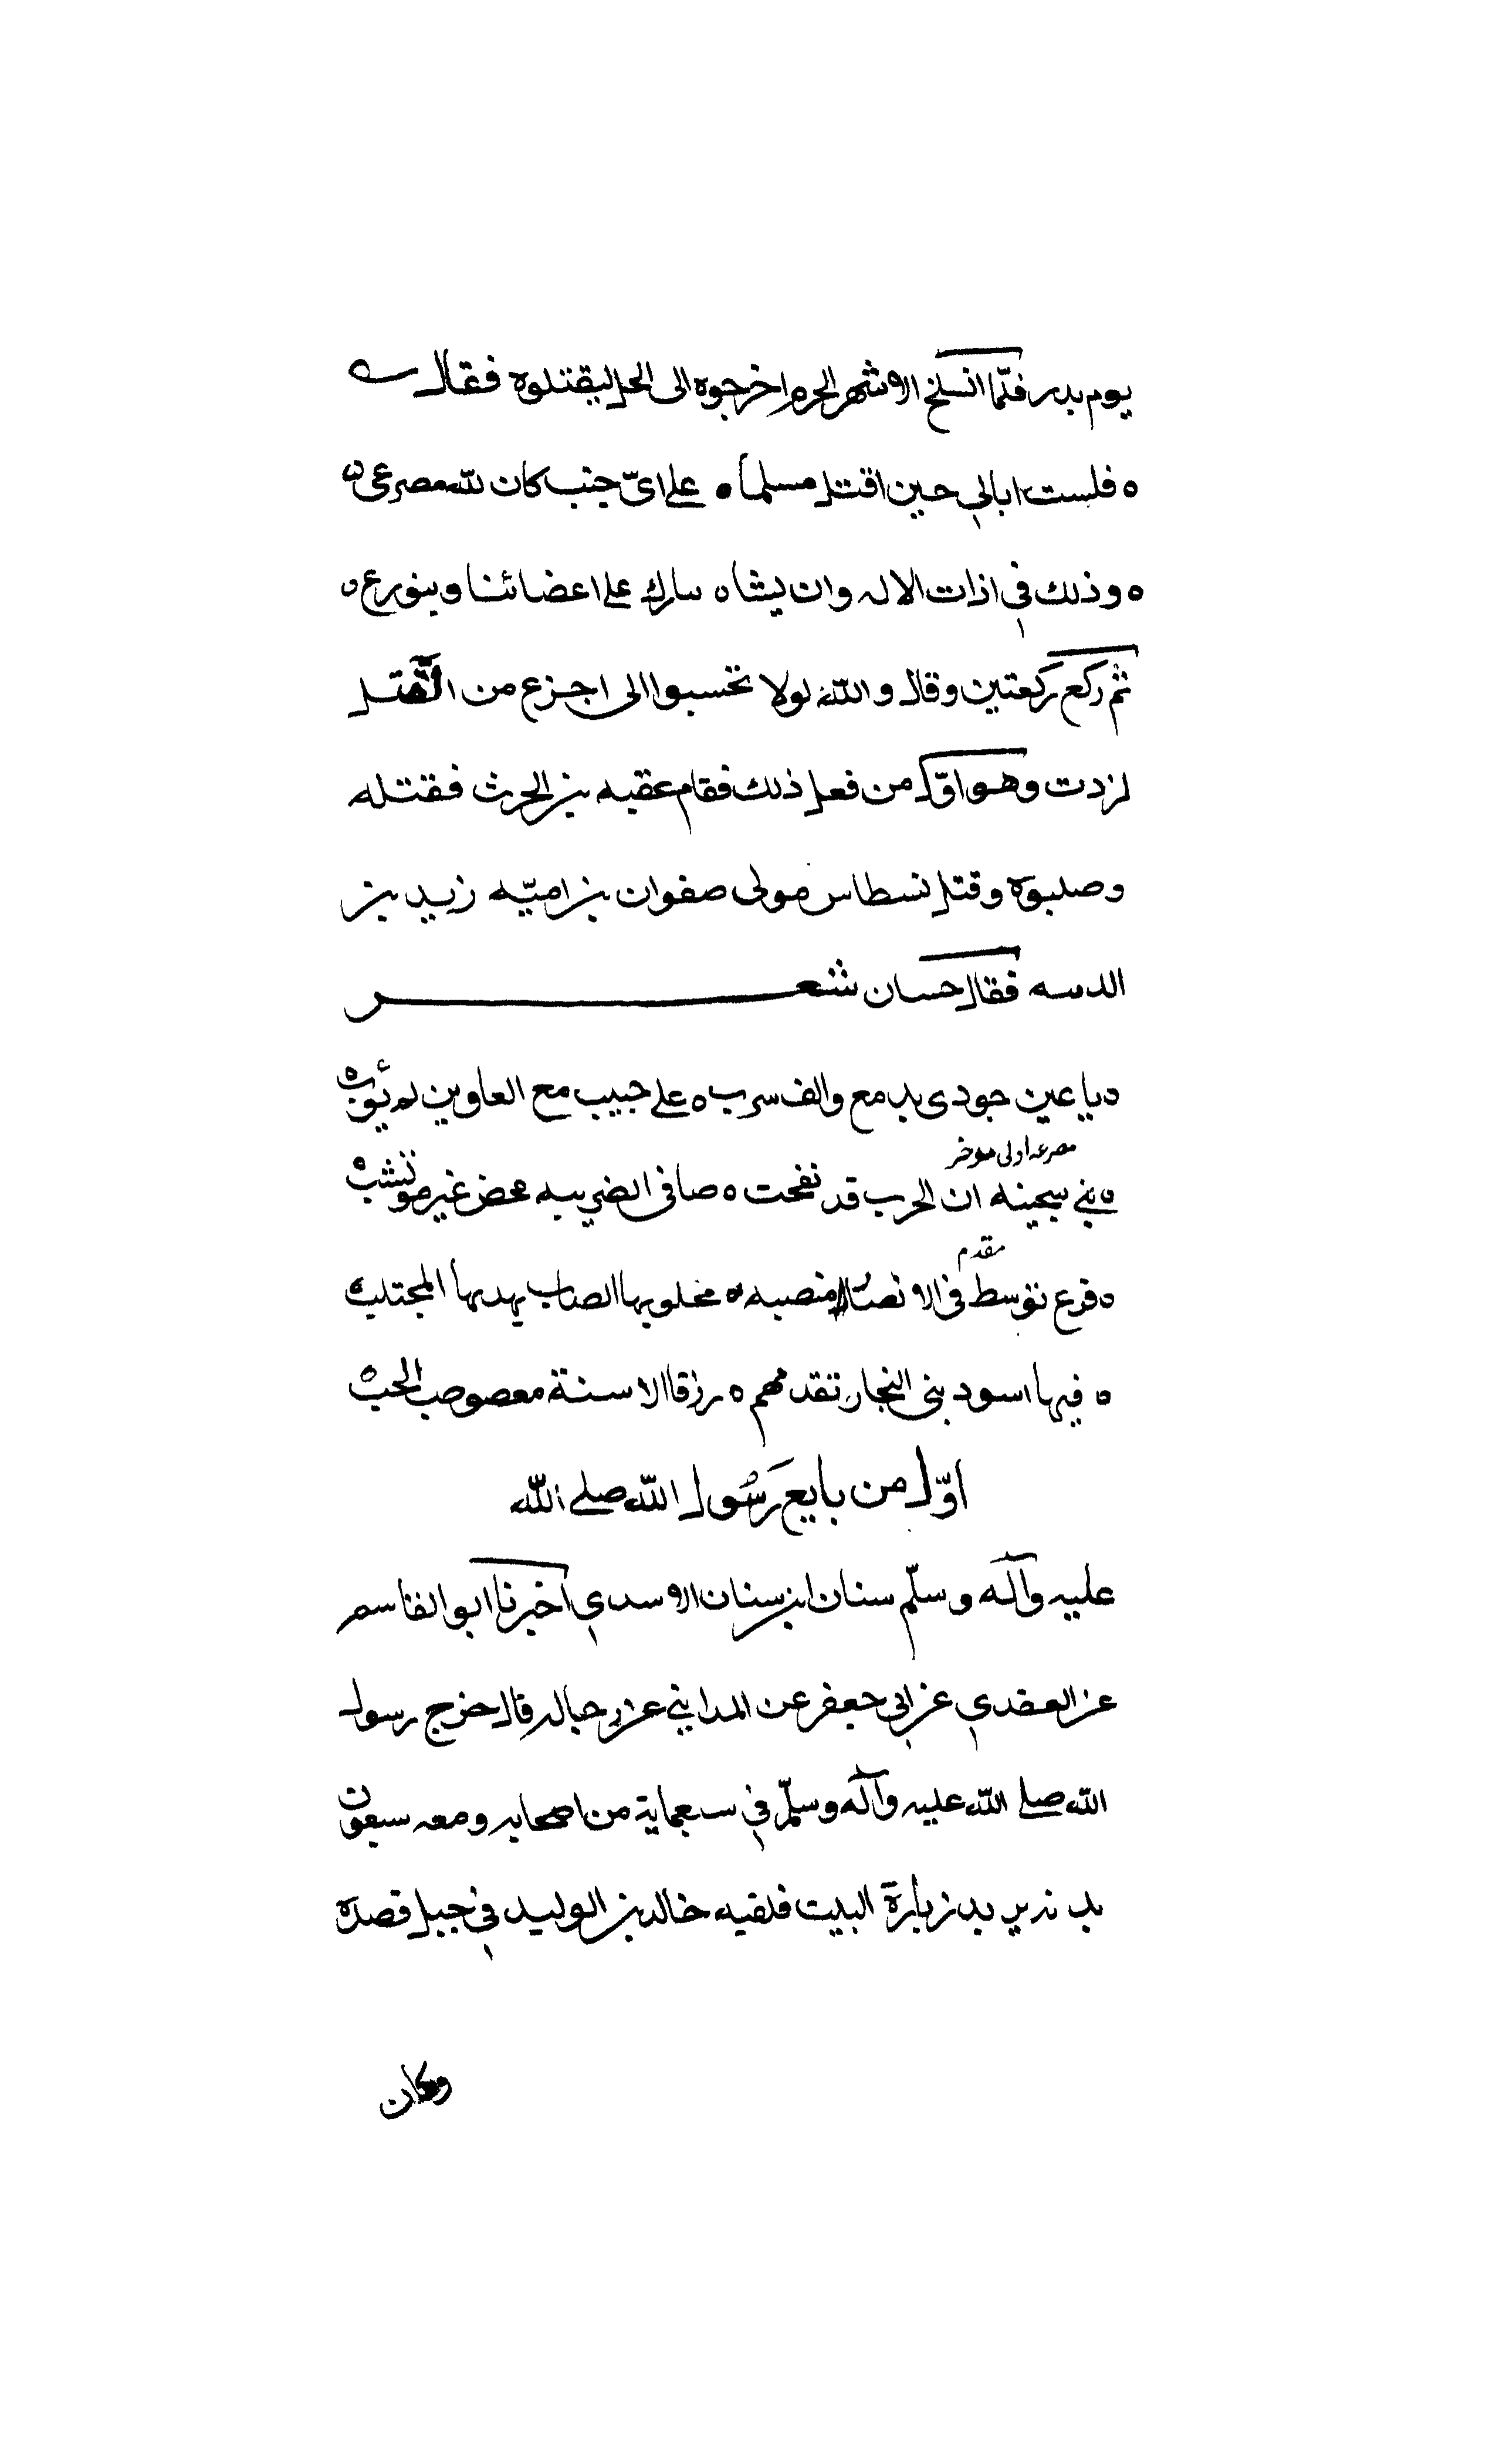 يوم بدر فلمّا انسلخ الاشهر الحرم اخرجوه الى الحل ليقتلوه فقال
ه فلست ابالي حين اقتل مسلما ه على ايّ جنب كان لله مصرعى ه
ه وذلك في اذات الاله وان يشاه سارك على اعضائنا وبنورع ه
ثم ركع ركعتين وقال والله لولا تحسبوا الى اجزع من القتل
لزدت وهو اوّل من فعل ذلك فقام عقبه بن الحرث فقتله
وصلبوه وقتل نسطاس مولى صفوان بن اميّه زيد بن
الدسه فقال حسان شعر
ه يا عين جودى بدمع والف سرب ه على حبيب مع العاوين لم يؤب ه
مصرعه اولى موخر
ه بني سجينه ان الحرب قد نفحت ه صافى الضريبه محض غير موتشب ه
مقدم
ه فرع توسط فى الانصار منصبه ه محلوبها الصاب يهديها المجتلب ه
ه فيها اسود بنى النجار تقدمهم ه زرقا الاسنة معصوصب الحب ه
اوّل من بايع رَسُول الله صلى الله
عليه وآله وسلّم سنان ابن سنان الاسدي اخبرنا ابو القاسم
عن العقدي عن ابي جعفر عن المدايني عن رجاله قال خرج رسول
الله صلى الله عليه وآله وسلّم في سبعماية من اصحابه ومعه سبعون
بدنه يريد زيارة البيت فلقيه خالد بن الوليد في جبل قصده
وكان